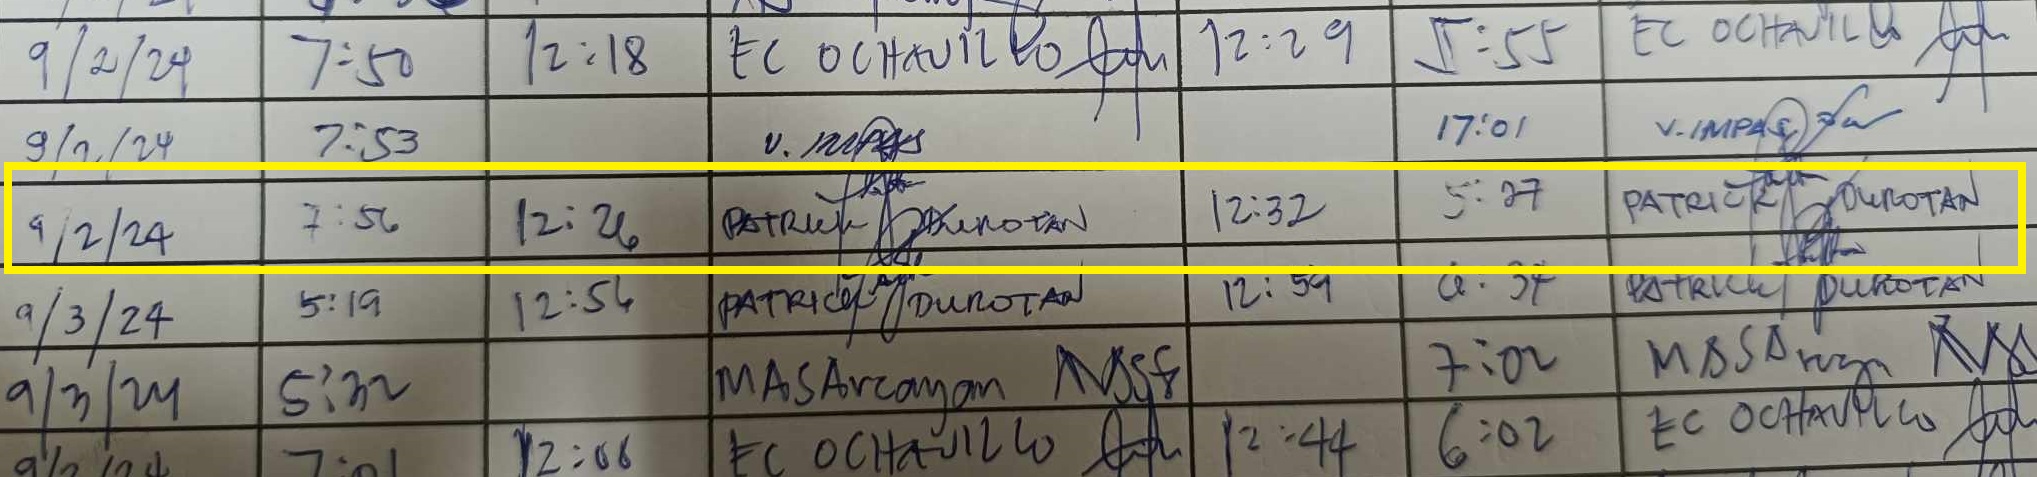 9/2/24 7:50 12:18 EC OCHAVILLO 12:29 5:55 EC OCHAVILLO
9/2/24 7:53 V. IMPAS 17:01 V. IMPAS
9/2/24 7:56 12:26 PATRICK DUROTAN 12:32 5:37 PATRICK DUROTAN
9/3/24 5:19 12:56 PATRICK DUROTAN 12:59 6:34 PATRICK DUROTAN
9/3/24 5:32 MASArcayan 7:02 MASArcayan
7:01 12:06 EC OCHAVILLO 12:44 6:02 EC OCHAVILLO